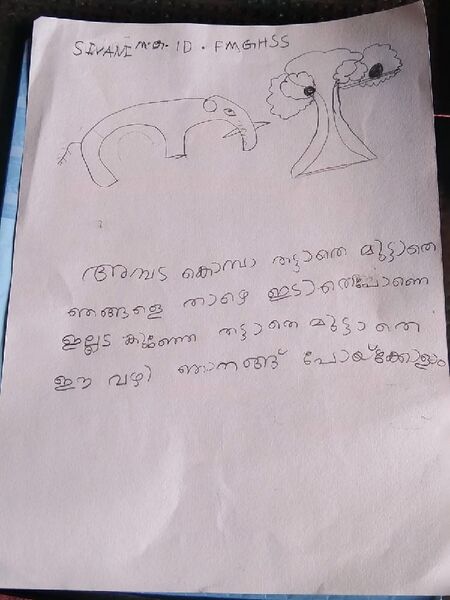 SIVANI M.G. 1D. FMGHSS
അമ്പട കൊമ്പാ തട്ടാതെ മുട്ടാതെ
ഞങ്ങളെ താഴെ ഇടാതെപോണെ
ഇല്ലട കുഞ്ഞേ തട്ടാതെ മുട്ടാതെ
ഈ വഴി ഞാനങ്ങ് പോയ്ക്കോളാം